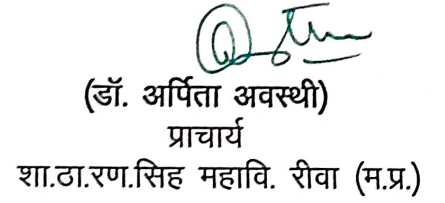 (डॉ. अर्पिता अवस्थी)
प्राचार्य
शा.ठा.रण.सिह महावि. रीवा (म.प्र.)